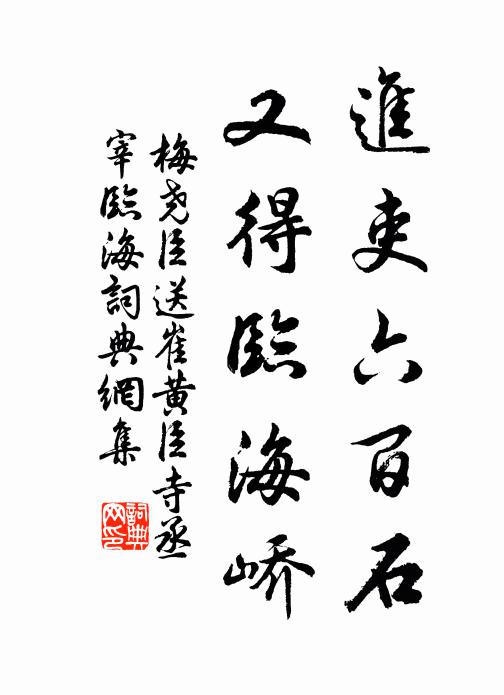 進吏六百石
又得臨海嶠
梅堯臣送崔黃臣寺丞
宰臨海詞典網集
詞典网印